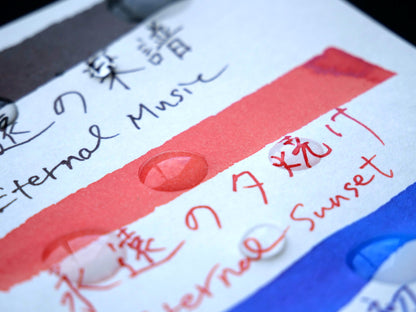 遠の楽譜
Eternal Music
永遠の夕焼け
Eternal Sunset